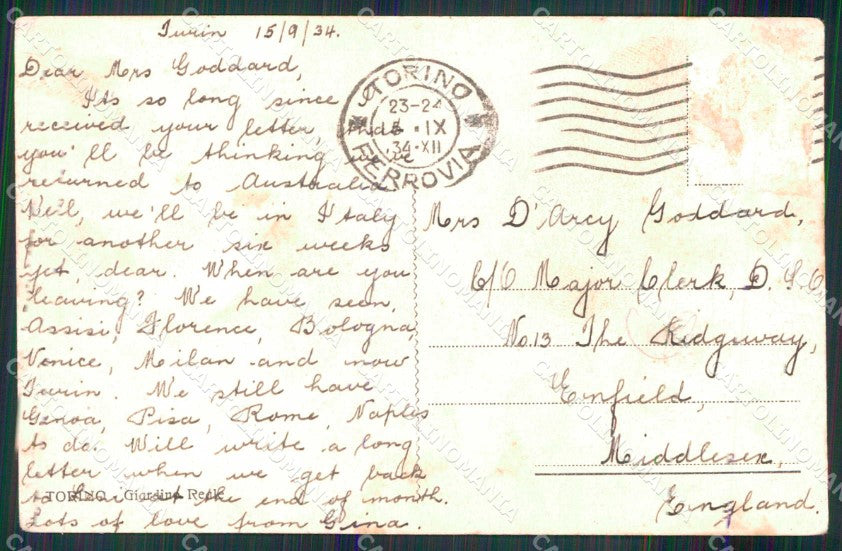 Turin 15/9/34.
Dear Mrs Goddard,
Its so long since
received your letter, that
you'll be thinking we've
returned to Australia.
Well, we'll be in Italy
for another six weeks
yet, dear. When are you
leaving? We have seen
Assisi, Florence, Bologna,
Venice, Milan and now
Turin. We still have
Genoa, Pisa, Rome, Naples
to do. Will write a long
letter when we get back
to the end of month.
Lots of love from Gina.
TORINO - Giardino Reale
TORINO
23-24
IX
34-XII
FERROVIA
Mrs D'Arcy Goddard,
C/O Major Clerk, D.S.O
No.13 The Ridgeway,
Enfield,
Middlesex,
England.
CARTOLINOMANIA